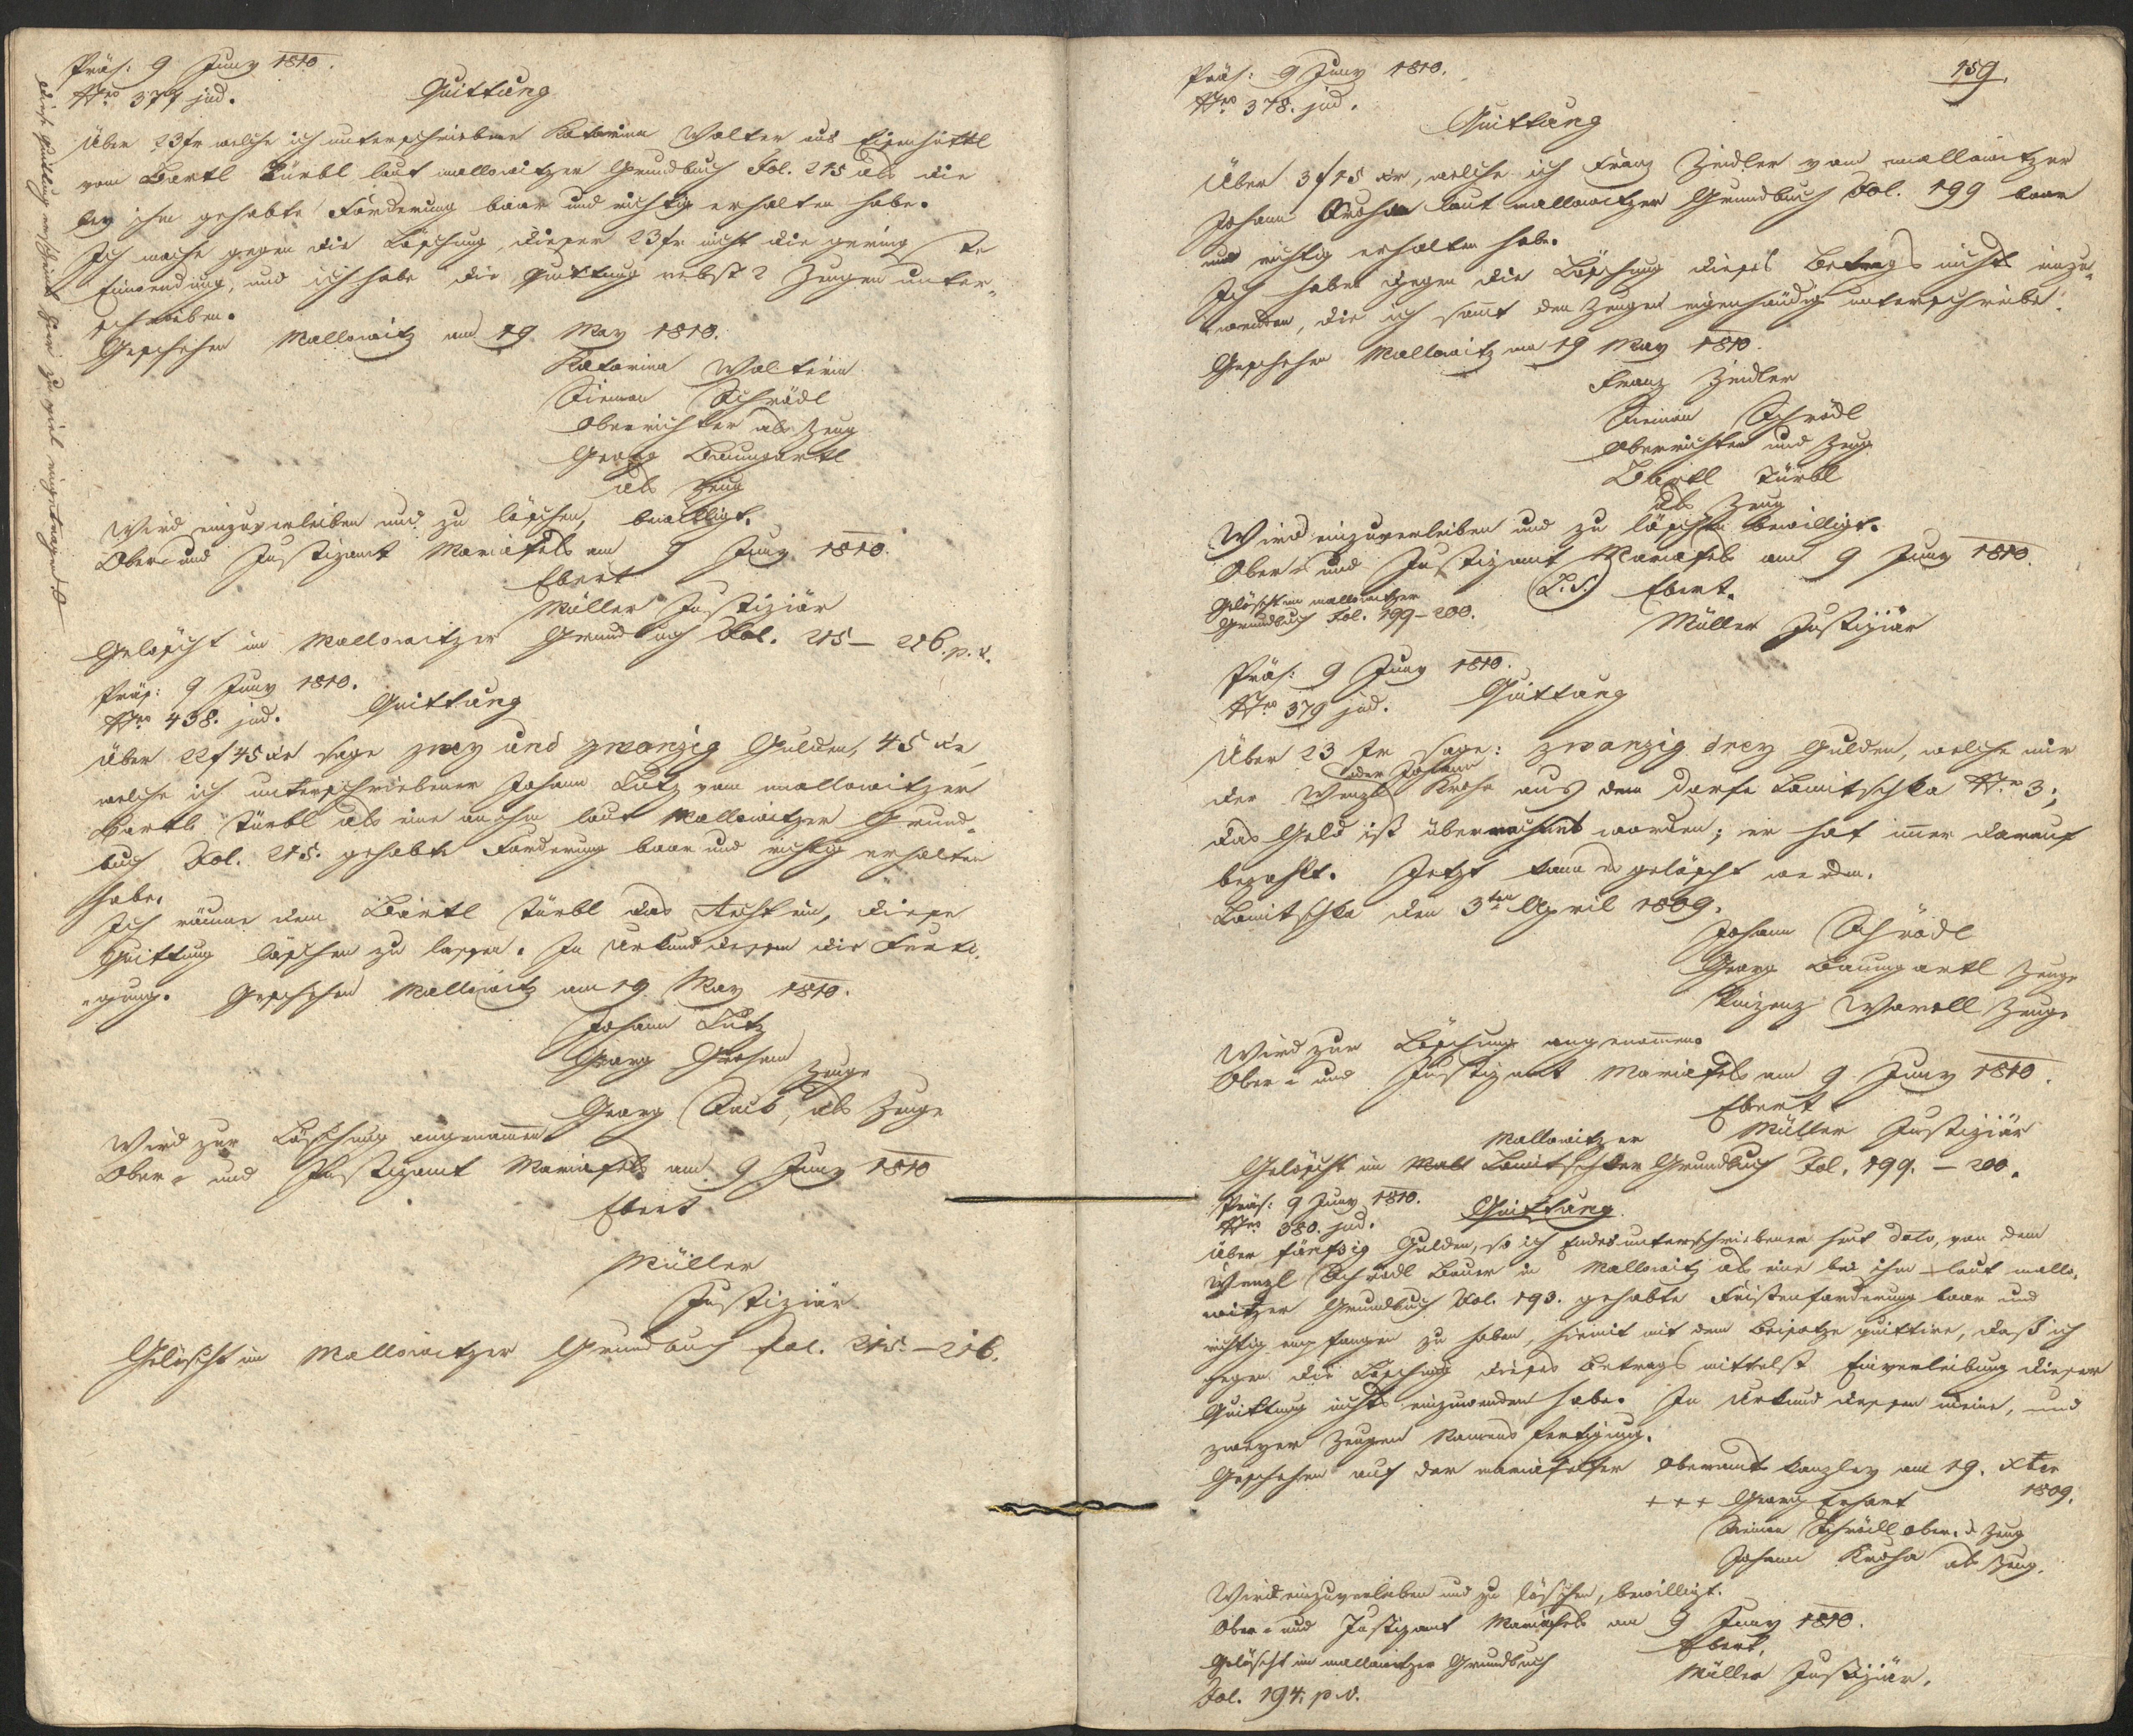 Präs: 9 Juny 1810.
Nro 377 jud. Quittung
Über 23 fr welche ich unterschriebene Katarina Walter aus Eisenhüttl
vom Bartl Türbl laut mallowitzer Grundbuch Fol. 215 als die
bey ihm gehabte Forderung baar und richtig erhalten habe.
Ich mache gegen die Löschung dieser 23 fr nicht die gering ste
Einwendung, und ich habe die Quittung nebst 2 Zeugen unter-
schrieben.
Geschehen Mallowitz am 19 May 1810.
Katarina Walterin
Simon Schrödl
Oberrichter als Zeug
Georg Baumgartl
als Zeug
Wird einzuverleiben und zu löschen, bewilligt.
Ober- und Justizamt Mariafels am 9 Juny 1810.
Ebert
Müller Justiziär
Gelöscht im Mallowitzer Grundbuch Fol. 215 – 216. p. v.
Diese Quittung erscheint hier zu viel eingetragen.
Präs: 9 Juny 1810.
Nro 438. jud. Quittung
Über 22 f 45 xr sage zwey und zwanzig Gulden, 45 xr,
welche ich unterschriebener Johann Lutz vom mallowitzer
Bartl Türbl als eine an ihm laut Mallowitzer Grund-
buch Fol. 215. gehabte Forderung baar und richtig erhalten
habe.
Ich räume dem Bartl Türbl das Recht ein, diese
Quittung löschen zu lassen. In Urkund dessen die Ferti-
-gung. Geschehen Mallowitz am 19 May 1810.
Johann Lutz
Georg
Zeuge
Georg als Zeuge
Wird zur Löschung angenommen
Ober- und Justizamt Mariafels am 9 Juny 1810
Ebert
Müller
Justiziär
Gelöscht im Mallowitzer Grundbuch Fol. 215 – 216.
159.
Präs: 9 Juny 1810.
Nro 378. jud.
Quittung
Über 3 f 15 xr, welche ich Franz Zeidler vom mallowitzer
Johann Kroha laut mallowitzer Grundbuch Fol. 199 baar
und richtig erhalten habe.
Ich habe gegen die Löschung dieses Betrags nichts einzu-
wenden, die ich samt den Zeugen eigenhändig unterschriebe.
Geschehen Mallowitz am 19 May 1810.
Franz Zeidler
Simon Schrödl
Oberrichter und Zeug
Bartl Türbl
als Zeug
Wird einzuverleiben und zu löschen bewilligt.
Ober- und Justizamt Mariafels am 9 Juny 1810.
(L.S.) Ebert.
Gelöscht im mallowitzer
Grundbuch Fol. 199 – 200.
Müller Justiziär
Präs: 9 Juny 1810.
Nro 379 jud. Quittung
Über 23 fr sage: zwanzig drey Gulden, welche mir
oder Johann
der Wenzl Kroha aus dem Dorfe Lomitschka No 3;
das Geld ist überrechnet worden; er hat immer darauf
bezahlt. Jetzt kann es gelöscht werden.
Lomitschka den 3ten April 1809.
Johann Schrödl
Georg Baumgartl Zeuge
Zeuge
Wird zur Löschung angenommen
Ober- und Justizamt Mariafels am 9 Juny 1810.
Ebert
Müller Justiziär
Mallowitzer
Gelöscht im Mall Lomitschker Grundbuch Fol. 199. – 200.
Präs: 9 Juny 1810. Quittung
Nro 380. jud.
Über fünfzig Gulden, so ich Endesunterschriebener heut dato, von dem
Wenzl Schrödl Bauer in Mallowitz als eine bei ihm laut mallo-
witzer Grundbuch Fol. 193. gehabte Fristenforderung baar und
richtig empfangen zu haben, hiemit mit dem Beisatze quittire, daß ich
gegen die Löschung dieses Betrags mittelst Einverleibung dieser
Quittung nichts einzuwenden habe. In Urkund dessen meine, und
zweyer Zeugen Namens Fertigung.
Geschehen auf der mariafelser Oberamts Kanzley am 19. Xber
1809.
+++ Georg Erhart
Simon Schrödl Ober. Zeug
Johann Kroha als Zeug.
Wird einzuverleiben und zu löschen, bewilligt.
Ober- und Justizamt Mariafels am 9 Juny 1810.
Ebert,
Gelöscht im mallowitzer Grundbuch
Müller Justiziär.
Fol. 194. p. v.